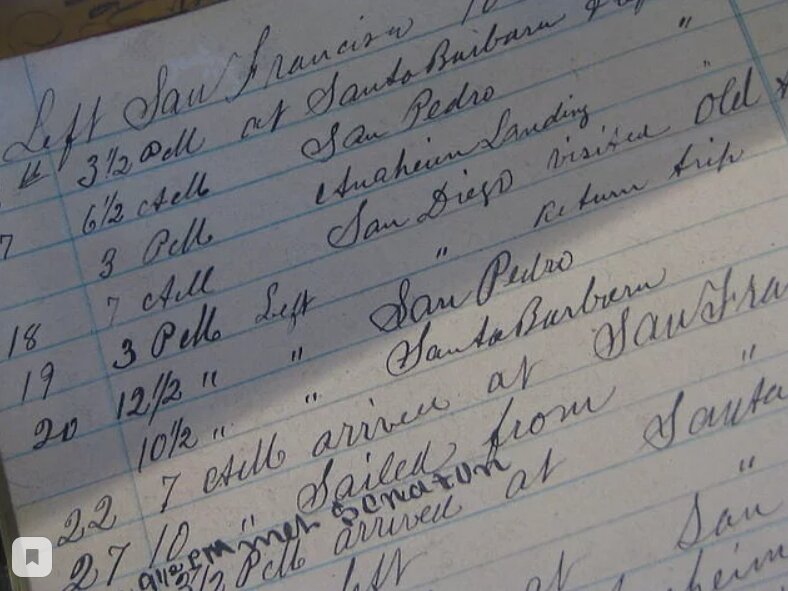 Left San Francisco 10
" 3 1/2 PM at Santa Barbara
6 1/2 AM San Pedro "
7 3 PM Anaheim Landing "
7 AM San Diego visited Old
18 3 PM Left " Return trip
19 12 1/2 " " San Pedro
20 10 1/2 " " Santa Barbara
22 7 AM arrived at San Fra
27 10 " Sailed from "
9 1/2 PM met Senator
3 1/2 PM arrived at Santa
left at San "
heim